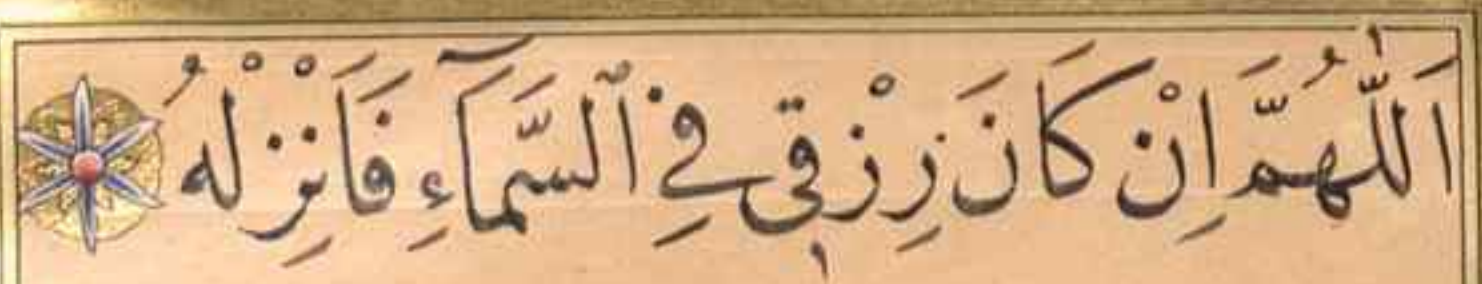 اَللّٰهُمَّ اِنْ كَانَ رِزْقٖى فِي ٱلسَّمَآءِ فَاَنْزِلْهُ